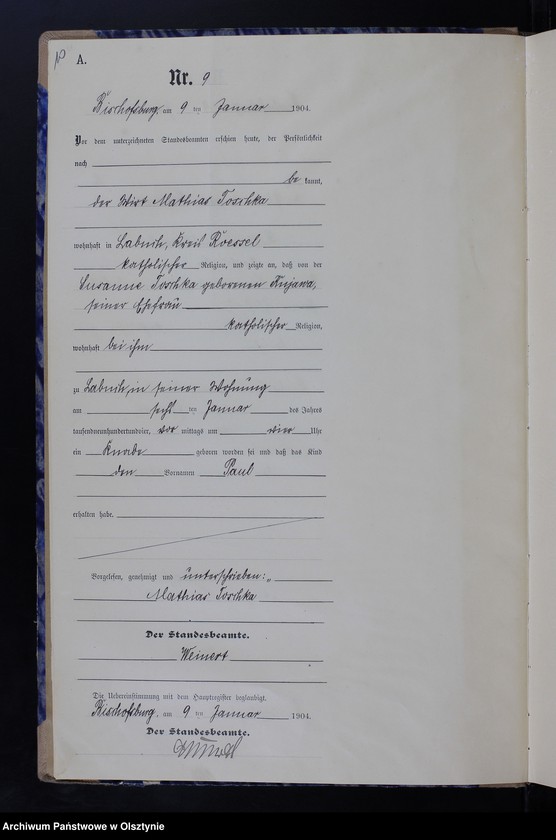 A.
Nr. 9
Bischofsburg, am 9 ten Januar 1904.
Vor dem unterzeichneten Standesbeamten erschien heute, der Persönlichkeit
nach
be kannt,
der Wirt Mathias Toschka
wohnhaft in Labuch, Kreis Roessel
katholischer Religion, und zeigte an, daß von der
Susanna Toschka geborenen Kujawa,
seiner Ehefrau
katholischer Religion,
wohnhaft bei ihm
zu Labuch, in seiner Wohnung
am sechs ten Januar des Jahres
tausendneunhundertundvier, vor mittags um vier Uhr
ein Knabe geboren worden sei und daß das Kind
den Vornamen Paul
erhalten habe.
Vorgelesen, genehmigt und unterschrieben:
Mathias Toschka
Der Standesbeamte.
Weinert
Die Uebereinstimmung mit dem Hauptregister beglaubigt.
Bischofsburg, am 9 ten Januar 1904.
Der Standesbeamte.
Archiwum Państwowe w Olsztynie